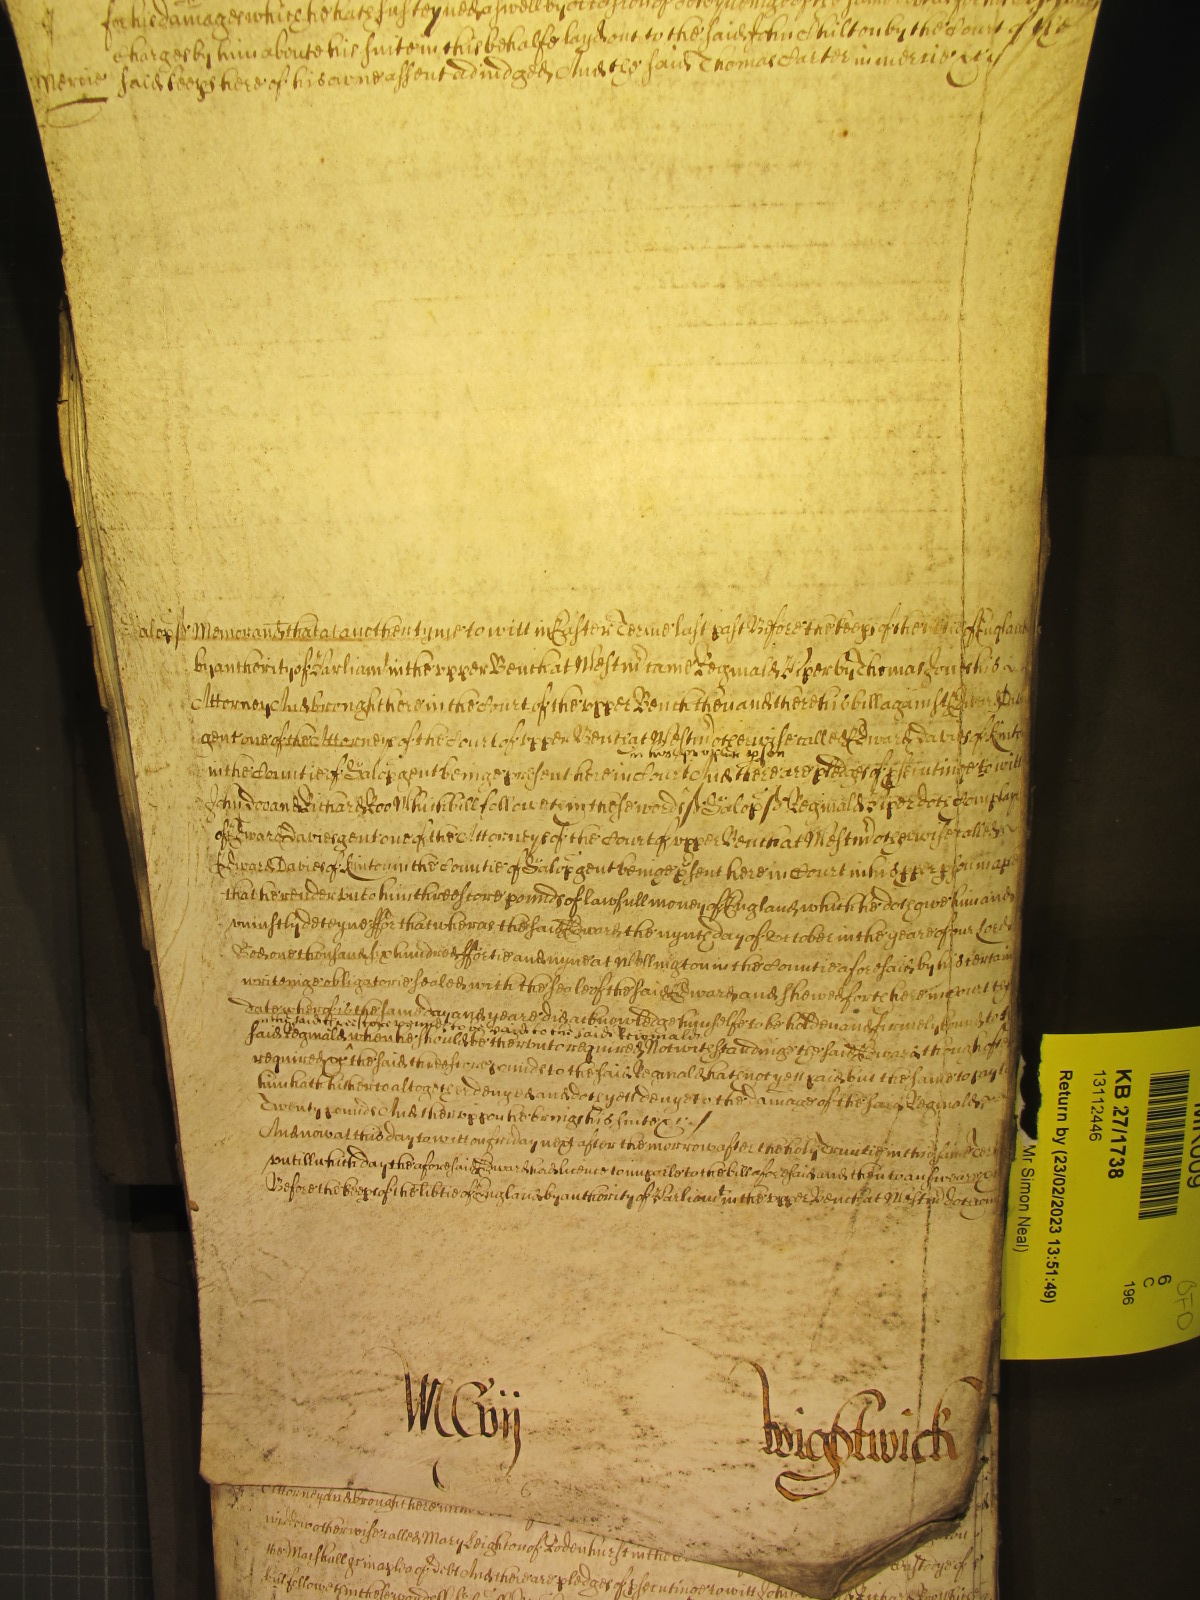 for his damages which he hath susteyned aswell by occasion of
charges by him aboute his suite in this behalfe layd out to the said John Chilton by the Court of the
Mercie said keeps here of his owne assent adiudged And the said Thomas Carter in mercie &c
Salop ss Memorand that at another tyme to witt in Easter Terme last past Before the keeps of the libtie of England
by authority of Parliam in the upper Bench at Westm came Reginald Piper by Thomas Jones his
Attorney And brought here in the Court of the upper Bench then and there his bill against Edward Davies
gent one of the Attorneys of the Court of upper Bench at Westm otherwise called Edward Davies of Kinton
in his proper pson
in the Countie of Salop gent beinge present here in Court And there are pledges of psecutinge to witt
John Doo and Richard Roo Which bill followeth in these words ss Salop ss Reginald Piper doth complayne
of Edward Davies gent one of the Attorneys of the Court of upper Bench at Westm otherwise called
Edward Davies of Kinton in the Countie of Salop gent beinge psent here in Court in his pper pson in a plea
that he render unto him threescore pounds of lawfull money of England which he doth owe him and
uniustly deteyne ffor that whereas the said Edward the nynth day of October in the yeare of our Lord
God one thousand six hundred ffortie and nyne at Wellington in the Countie aforesaid by his certain
writeinge obligatorie sealed with the seale of the said Edward and shewed forth here in court the
date whereof is the same day and yeare did acknowledge himselfe to be holden and firmely bound to the
in the said threescore pounds to be paid to the said Reginald
said Reginald when he should be thereunto required Notwithstandinge the said Edward though often
required the said threescore pounds to the said Reginald hath not yett paid but the same to pay to
him hath hitherto altogether denyed and doth yett denye to the damage of the said Reginald
Twenty pounds And thereuppon he brings his suite &c
And now at this day to witt on friday next after the morrow after the holy Trinitie in this same Terme
untill which day the aforesaid Edward had licence to imparle to the bill aforesaid and then to answeare &c
Before the keeps of the libtie of England by authority of Parliamt in the upper Bench at Westm doth come
MCvij
Wightwick
Attorney And brought here in
widdow otherwise called Mary Leighton of Rodenhurst in the
the Marshall &c in a plea of debt And there are pledges of psecutinge to witt John
bill followeth in these words
KB 27/1738
13112446
Return by (23/02/2023 13:51:49)
Mr Simon Neal)
196
6
C